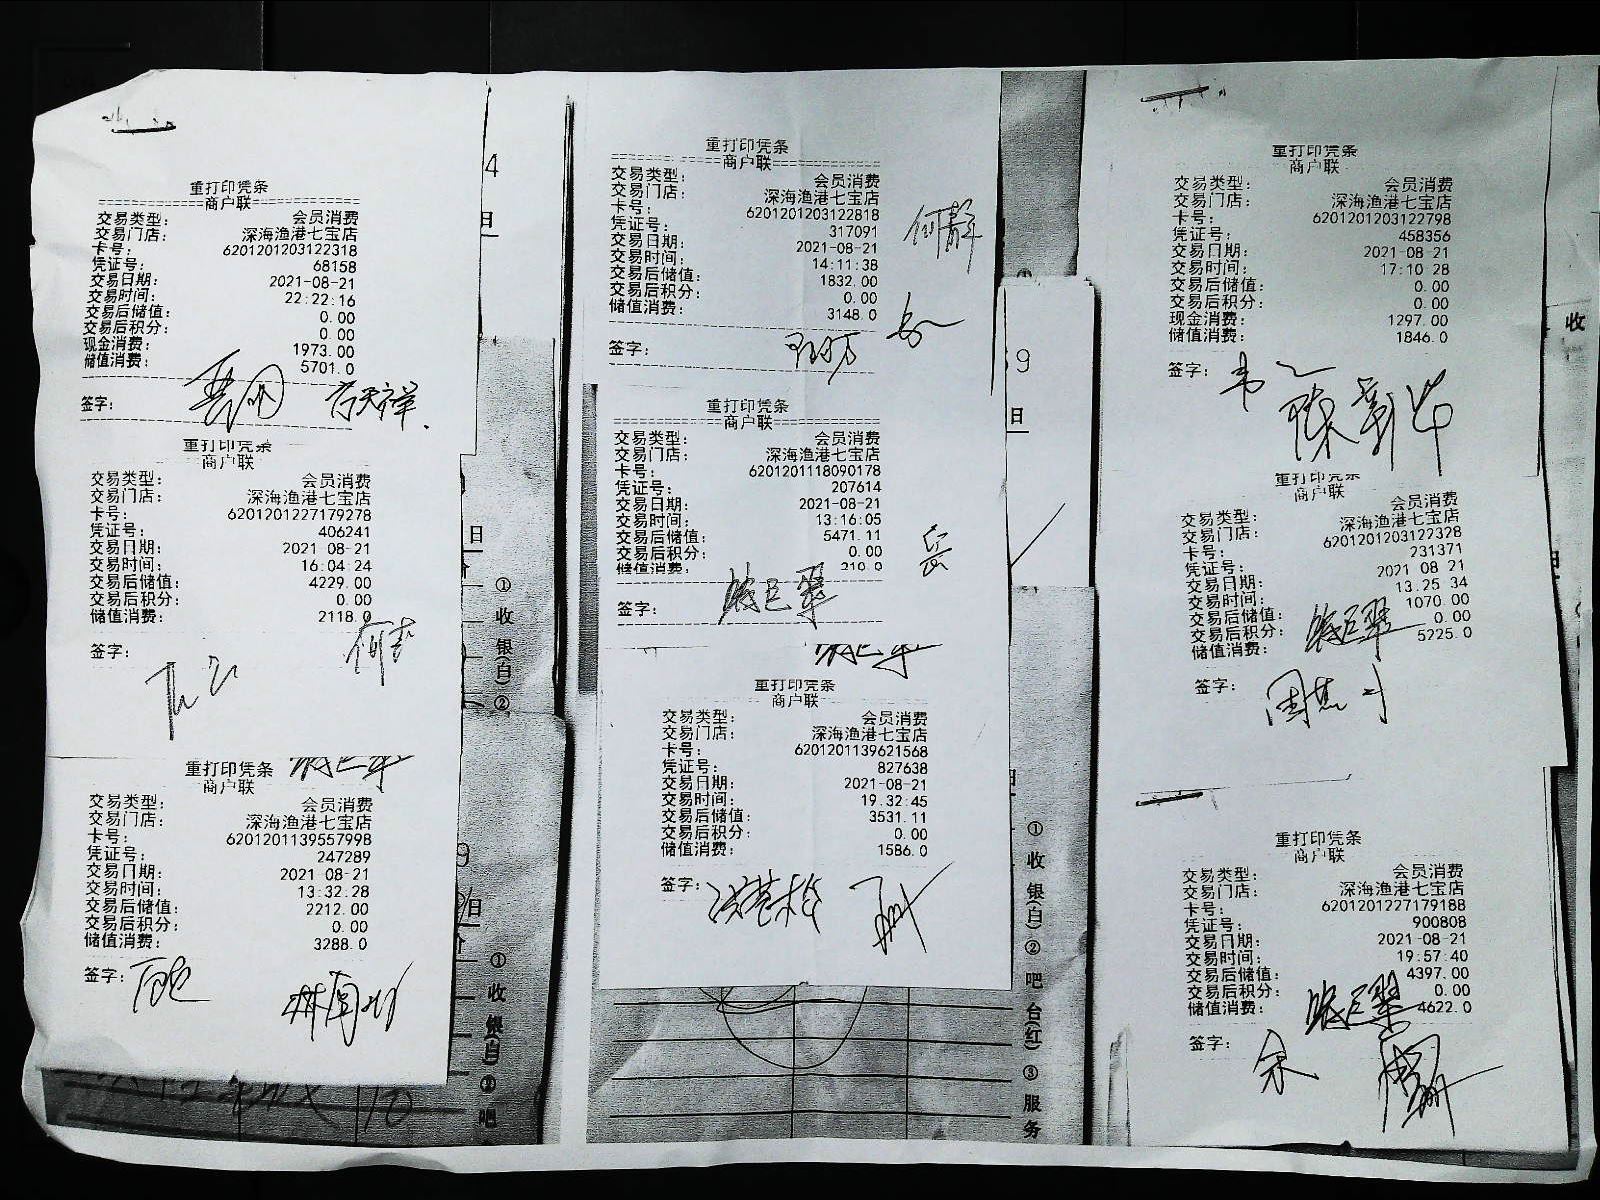 重打印凭条
商户联
交易类型： 会员消费
交易门店： 深海渔港七宝店
卡号： 6201201203122318
凭证号： 68158
交易日期： 2021-08-21
交易时间： 22:22:16
交易后储值： 0.00
交易后积分： 0.00
现金消费： 1973.00
储值消费： 5701.0
签字：
重打印凭条
商户联
交易类型： 会员消费
交易门店： 深海渔港七宝店
卡号： 6201201227179278
凭证号： 406241
交易日期： 2021 08-21
交易时间： 16:04:24
交易后储值： 4229.00
交易后积分： 0.00
储值消费： 2118.0
签字：
重打印凭条
商户联
交易类型： 会员消费
交易门店： 深海渔港七宝店
卡号： 6201201139557998
凭证号： 247289
交易日期： 2021 08-21
交易时间： 13:32.28
交易后储值： 2212.00
交易后积分： 0.00
储值消费： 3288.0
签字：
4
日
日
①收银(白)②
9
日
①收银(白)②吧
重打印凭条
商户联
交易类型： 会员消费
交易门店： 深海渔港七宝店
卡号： 6201201203122818
凭证号： 317091
交易日期： 2021-08-21
交易时间： 14:11:38
交易后储值： 1832.00
交易后积分： 0.00
储值消费： 3148.0
签字：
何静
重打印凭条
商户联
交易类型： 会员消费
交易门店： 深海渔港七宝店
卡号： 6201201118090178
凭证号： 207614
交易日期： 2021-08-21
交易时间： 13:16:05
交易后储值： 5471.11
交易后积分： 0.00
储值消费： 210.0
签字：
重打印凭条
商户联
交易类型： 会员消费
交易门店： 深海渔港七宝店
卡号： 6201201139621568
凭证号： 827638
交易日期： 2021-08-21
交易时间： 19.32:45
交易后储值： 3531.11
交易后积分： 0.00
储值消费： 1586.0
签字：
9
日
①收银(白)②吧台(红)③服务
重打印凭条
商户联
交易类型： 会员消费
交易门店： 深海渔港七宝店
卡号： 6201201203122798
凭证号： 458356
交易日期： 2021-08-21
交易时间： 17:10 28
交易后储值： 0.00
交易后积分： 0.00
现金消费： 1297.00
储值消费： 1846.0
签字：
重打印凭条
商户联
交易类型： 会员消费
交易门店： 深海渔港七宝店
卡号： 6201201203122328
凭证号： 231371
交易日期： 2021 08 21
交易时间： 13.25 34
交易后储值： 1070.00
交易后积分： 0.00
储值消费： 5225.0
签字：
重打印凭条
商户联
交易类型： 会员消费
交易门店： 深海渔港七宝店
卡号： 6201201227179188
凭证号： 900808
交易日期： 2021-08-21
交易时间： 19:57:40
交易后储值： 4397.00
交易后积分： 0.00
储值消费： 4622.0
签字：
收